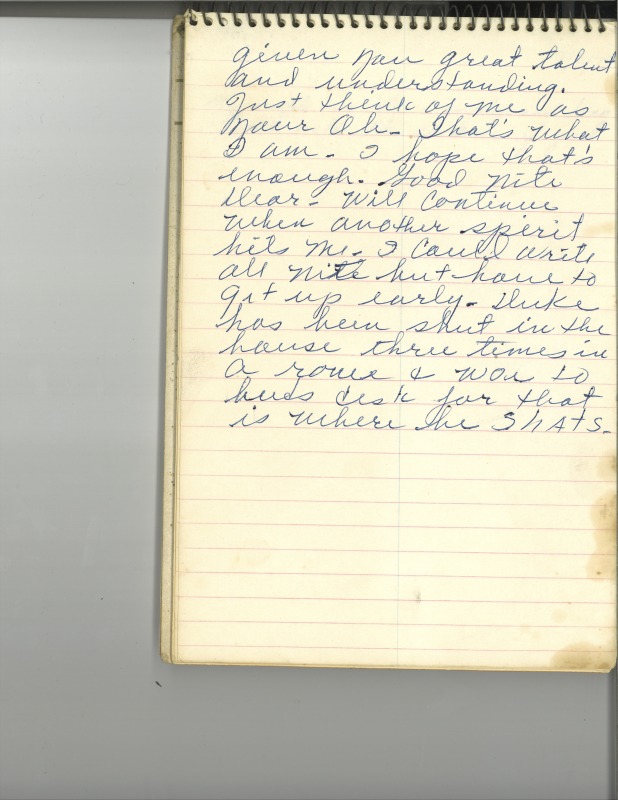 given you great talent
and understanding.
Just think of me as
your Oh- That's what
I am - I hope that's
enough. Good nite
Dear - Will continue
when another spirit
hits me. I could write
all nite but have to
git up early. Duke
has been shut in the
house three times in
a & wou to
desk for that
is where he Shats.